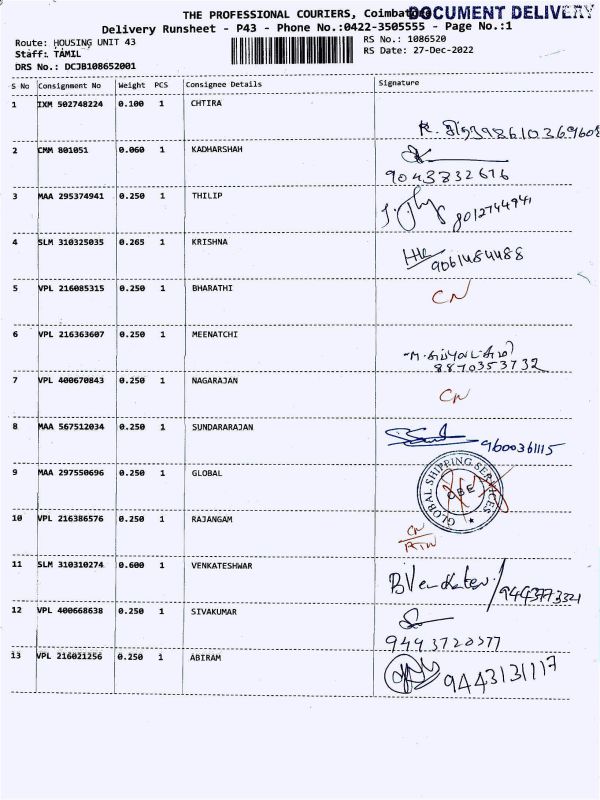 THE PROFESSIONAL COURIERS, Coimbatore
DOCUMENT DELIVERY
Delivery Runsheet - P43 - Phone No.:0422-3505555 - Page No.:1
Route: HOUSING UNIT 43
RS No.: 1086520
Staff: TAMIL
RS Date: 27-Dec-2022
DRS No.: DCJB108652001
S No Consignment No Weight PCS Consignee Details Signature
1 IXM 502748224 0.100 1 CHTIRA
2 CMM 801051 0.060 1 KADHARSHAH
9043832676
3 MAA 295374941 0.250 1 THILIP
8012744941
4 SLM 310325035 0.265 1 KRISHNA
9061484488
5 VPL 216085315 0.250 1 BHARATHI
CN
6 VPL 216363607 0.250 1 MEENATCHI
8870353732
7 VPL 400670843 0.250 1 NAGARAJAN
CN
8 MAA 567512034 0.250 1 SUNDARARAJAN
9600361115
9 MAA 297550696 0.250 1 GLOBAL
GLOBAL SHIPPING SERVICES
CBE
10 VPL 216386576 0.250 1 RAJANGAM
CN
RTN
11 SLM 310310274 0.600 1 VENKATESHWAR
B Venkates 9443773321
12 VPL 400668638 0.250 1 SIVAKUMAR
9443720377
13 VPL 216021256 0.250 1 ABIRAM
9443131117